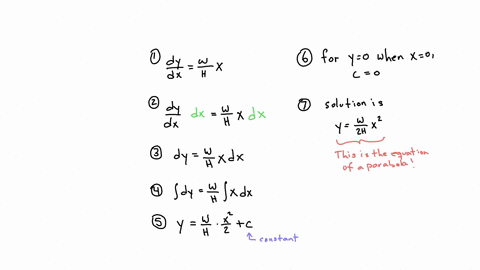 ① dy/dx = w/H x
② dy/dx dx = w/H x dx
③ dy = w/H x dx
④ ∫dy = w/H ∫x dx
⑤ y = w/H · x²/2 + c
↖ constant
⑥ for y=0 when x=0,
c = 0
⑦ solution is
y = w/2H x²
This is the equation
of a parabola!